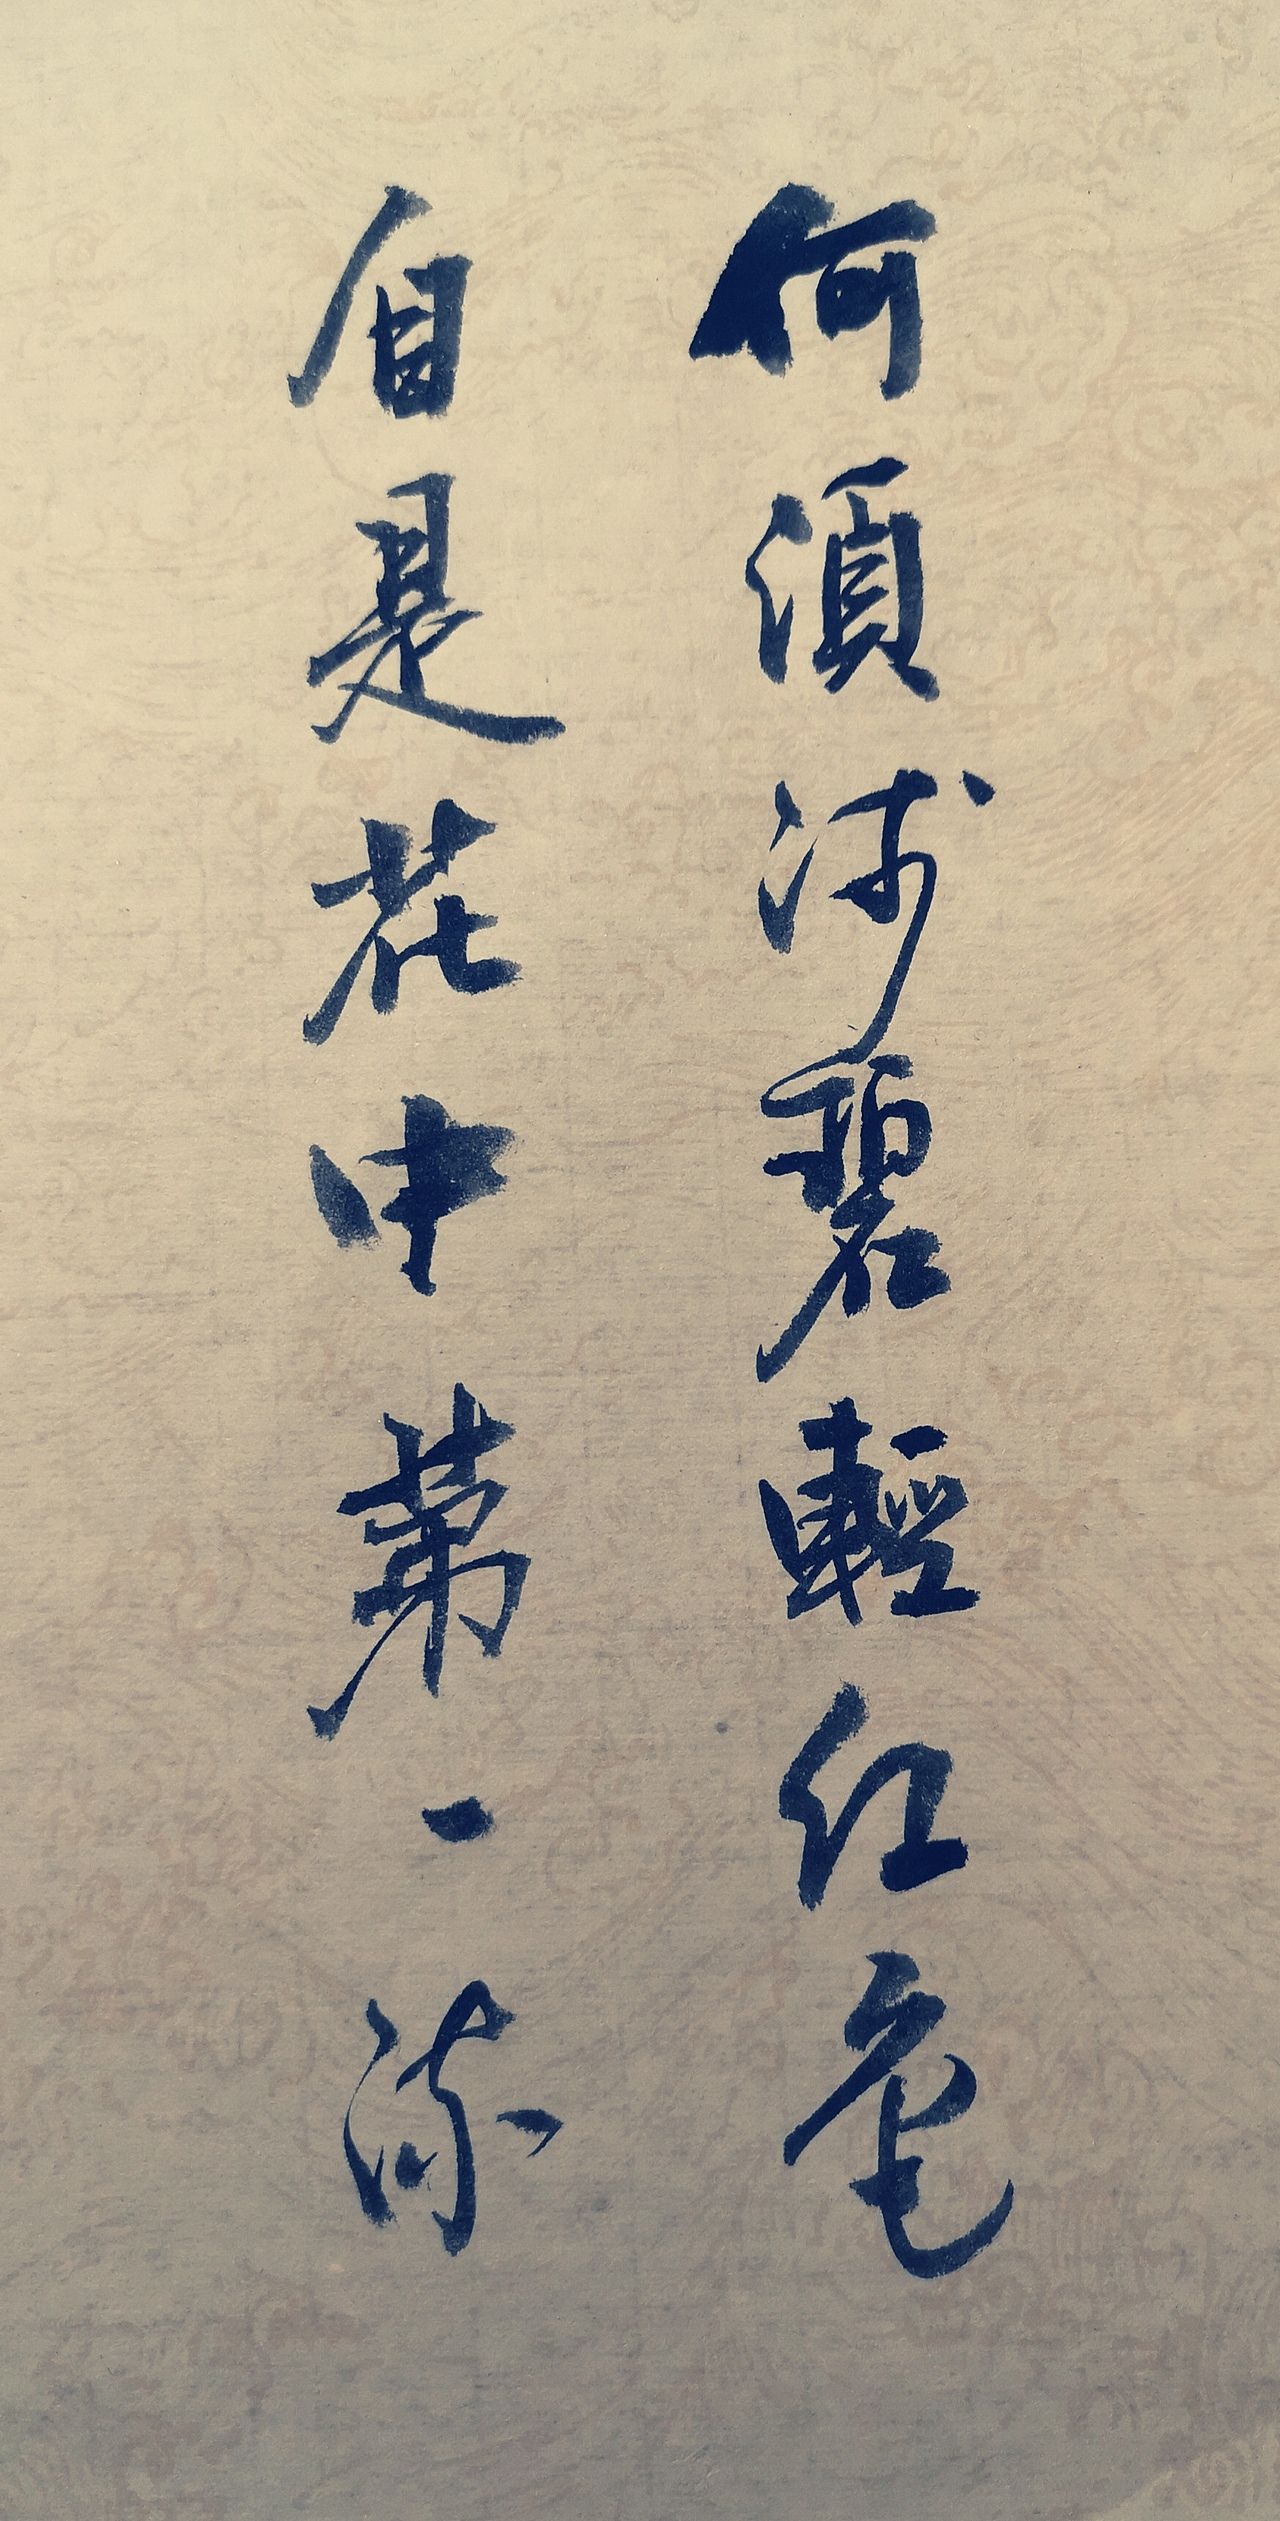 何須浅碧輕红色
自是花中第一流